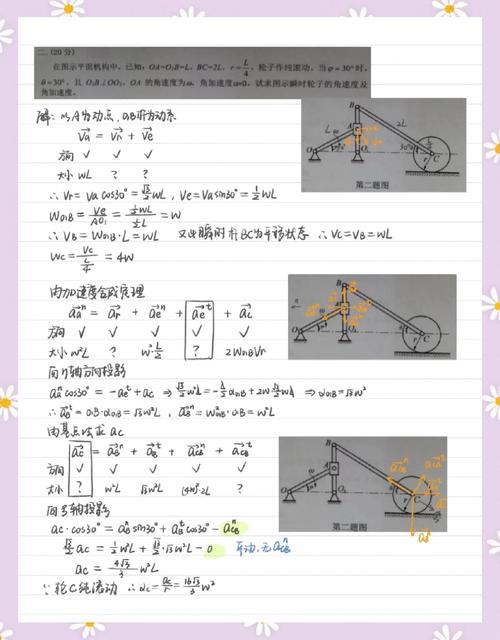 二.(20分)
在图示平面机构中，已知：OA=O₁B=L，BC=2L，r=L/4，轮子作纯滚动。当φ=30°时，
θ=30°，且O₁B⊥OO₁，OA的角速度为ω，角加速度α=0，试求图示瞬时轮子的角速度及
角加速度。
解：以A为动点，O₁B杆为动系
Va = Vr + Ve
方向 √ √ √
大小 ωL ? ?
∴ Vr = Va cos30° = √3/2 ωL，Ve = Va sin30° = 1/2 ωL
ωO₁B = Ve/AO₁ = (1/2 ωL)/(1/2 L) = ω
∴ VB = ωO₁B·L = ωL 又此瞬时杆BC为平移状态 ∴ VC = VB = ωL
ωC = VC/(L/4) = 4ω
第二题图
由加速度合成定理
aaⁿ = ar + aeⁿ + aeᵗ + ac
方向 √ √ √ √ √
大小 ω²L ? ω²·L/2 ? 2ωO₁BVr
向η轴方向投影
aaⁿcos30° = -aeᵗ + ac ⇒ √3/2 ω²L = -L/2 αO₁B + 2ω·√3/2 ωL ⇒ αO₁B = √3ω²
∴ aBᵗ = O₁B·αO₁B = √3ω²L，aBⁿ = ω²O₁B·O₁B = ω²L
由基点法求aC
aC = aBⁿ + aBᵗ + aCBⁿ + aCBᵗ
方向 √ √ √ √ √
大小 ? ω²L √3ω²L ?
向ξ轴投影
aC·cos30° = aBⁿsin30° + aBᵗcos30° - aCBⁿ
√3/2 aC = 1/2 ω²L + √3/2·√3ω²L - 0 平动，无aCBⁿ
aC = 4√3/3 ω²L
∵ 轮C纯滚动 ∴ αC = aC/r = 16√3/3 ω²
第二题图